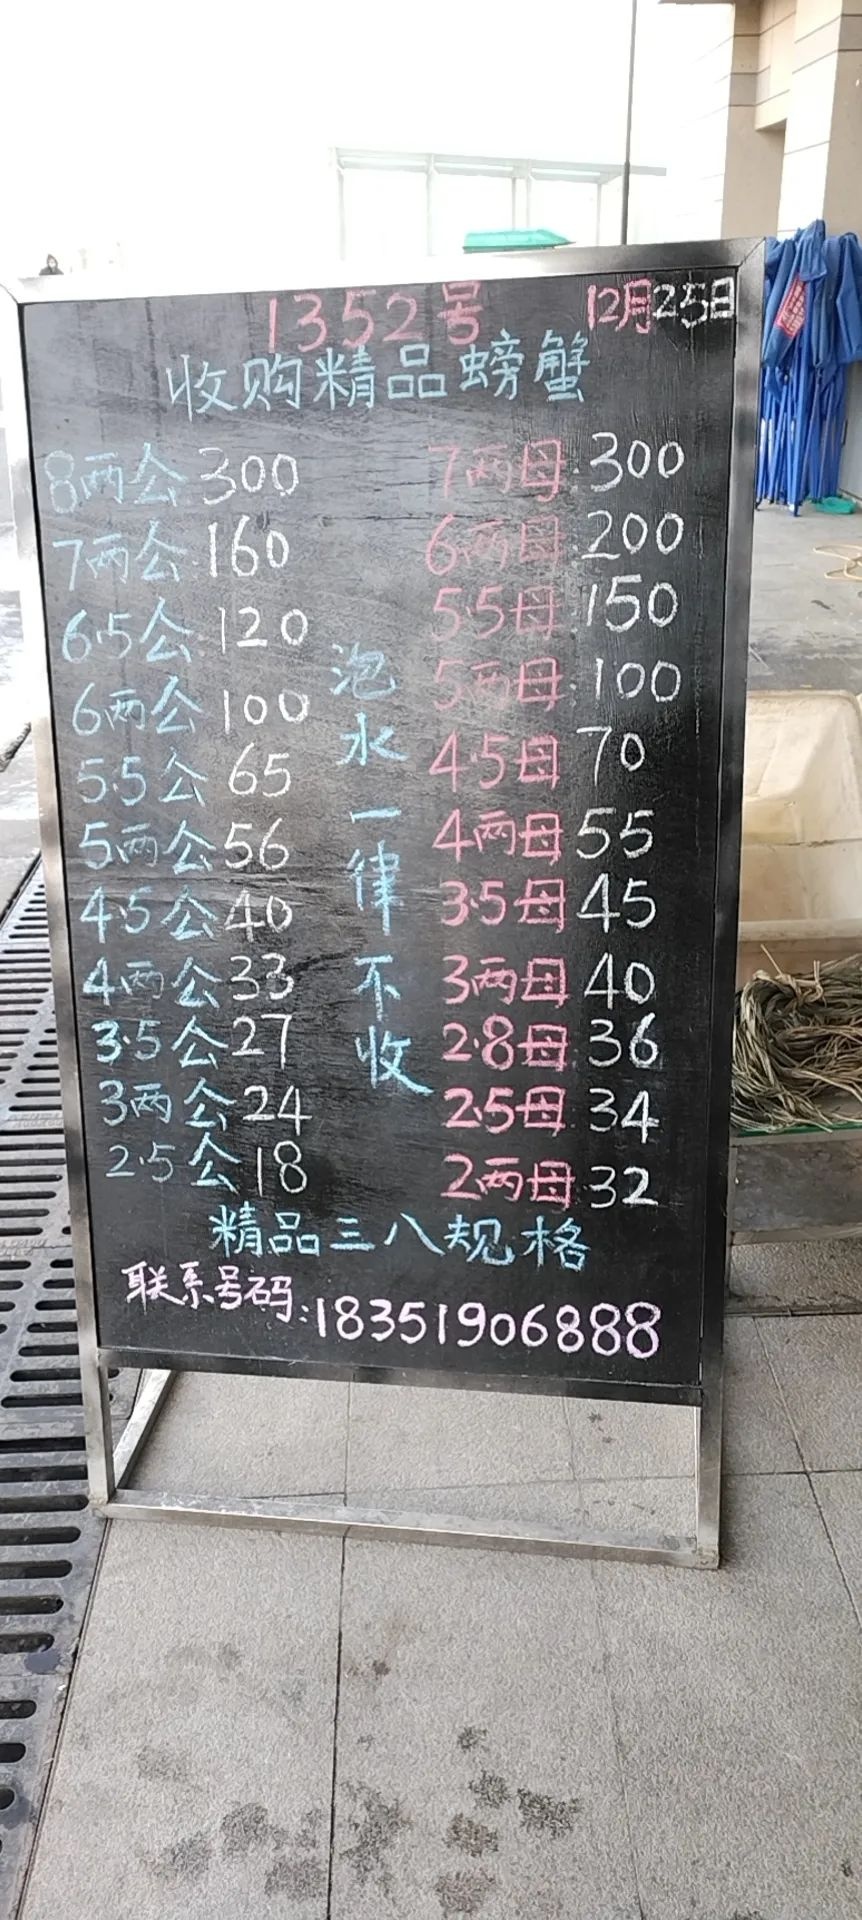 1352号 12月25日
收购精品螃蟹
8两公 300
7两公 160
6.5公 120
6两公 100
5.5公 65
5两公 56
4.5公 40
4两公 33
3.5公 27
3两公 24
2.5公 18
泡水一律不收
7两母 300
6两母 200
5.5母 150
5两母 100
4.5母 70
4两母 55
3.5母 45
3两母 40
2.8母 36
2.5母 34
2两母 32
精品三八规格
联系号码:18351906888